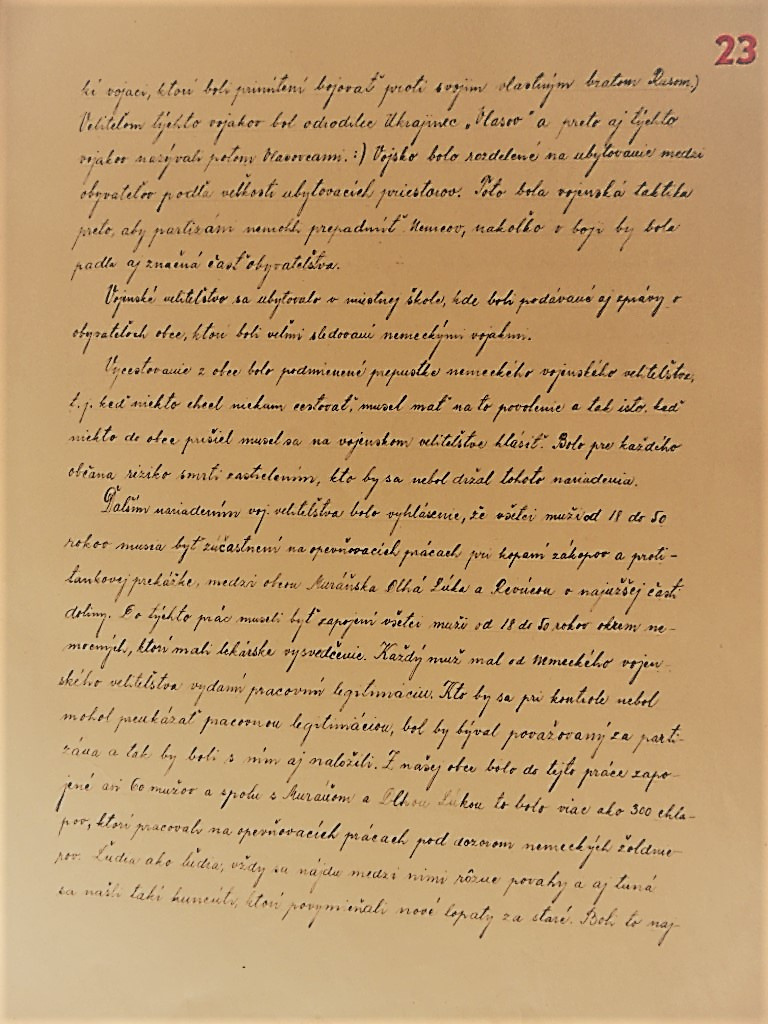 23
kí vojaci, ktorí boli prinútení bojovať proti svojim vlastným bratom Rusom.)
Veliteľom týchto vojakov bol odrodilec Ukrajinec „Vlasov" a preto aj týchto
vojakov nazývali potom Vlasovcami. :) Vojsko bolo rozdelené na ubytovanie medzi
obyvateľov podľa veľkosti ubytovacích priestorov. Toto bola vojenská taktika
preto, aby partizáni nemohli prepadnúť Nemcov, nakoľko v boji by bola
padla aj značná časť obyvateľstva.
Vojenské veliteľstvo sa ubytovalo v miestnej škole, kde boli podávané aj správy o
obyvateľoch obce, ktorí boli veľmi sledovaní nemeckými vojakmi.
Vycestovanie z obce bolo podmienené prepustke nemeckého vojenského veliteľstva,
t. j. keď niekto chcel niekam cestovať, musel mať na to povolenie a tak isto, keď
niekto do obce prišiel musel sa na vojenskom veliteľstve hlásiť. Bolo pre každého
občana riziko smrti zastrelením, kto by sa nebol držal tohoto nariadenia.
Ďalším nariadením voj. veliteľstva bolo vyhlásenie, že všetci muži od 18 do 50
rokov musia byť zúčastnení na opevňovacích prácach pri kopaní zákopov a proti-
tankovej prekážke, medzi obcou Muráňska Dlhá Lúka a Revúcou v najužšej časti
doliny. Do týchto prác museli byť zapojení všetci muži od 18 do 50 rokov okrem ne-
mocných, ktorí mali lekárske vysvedčenie. Každý muž mal od nemeckého vojen-
ského veliteľstva vydanú pracovnú legitimáciu. Kto by sa pri kontrole nebol
mohol preukázať pracovnou legitimáciou, bol by býval považovaný za parti-
zána a tak by boli s ním aj naložili. Z našej obce bolo do tejto práce zapo-
jené asi 60 mužov a spolu s Muráňom a Dlhou Lúkou to bolo viac ako 300 chla-
pov, ktorí pracovali na opevňovacích prácach pod dozorom nemeckých žoldnie-
rov. Ľudia ako ľudia, vždy sa nájdu medzi nimi rôzne povahy a aj tuná
sa našli takí huncúti, ktorí povymieňali nové lopaty za staré. Boli to naj-